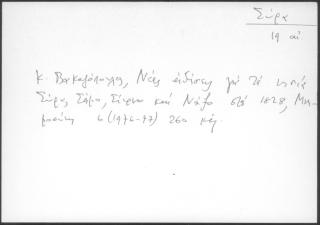 Σύρα
19 αἰ
Κ. Βακαλόπουλος, Νέες εἰδήσεις γιά τά νησιά
Σύρο, Σάμο, Σίφνο καί Νάξο στά 1828, Μνη-
μοσύνη 6 (1976-77) 260 κἑξ.